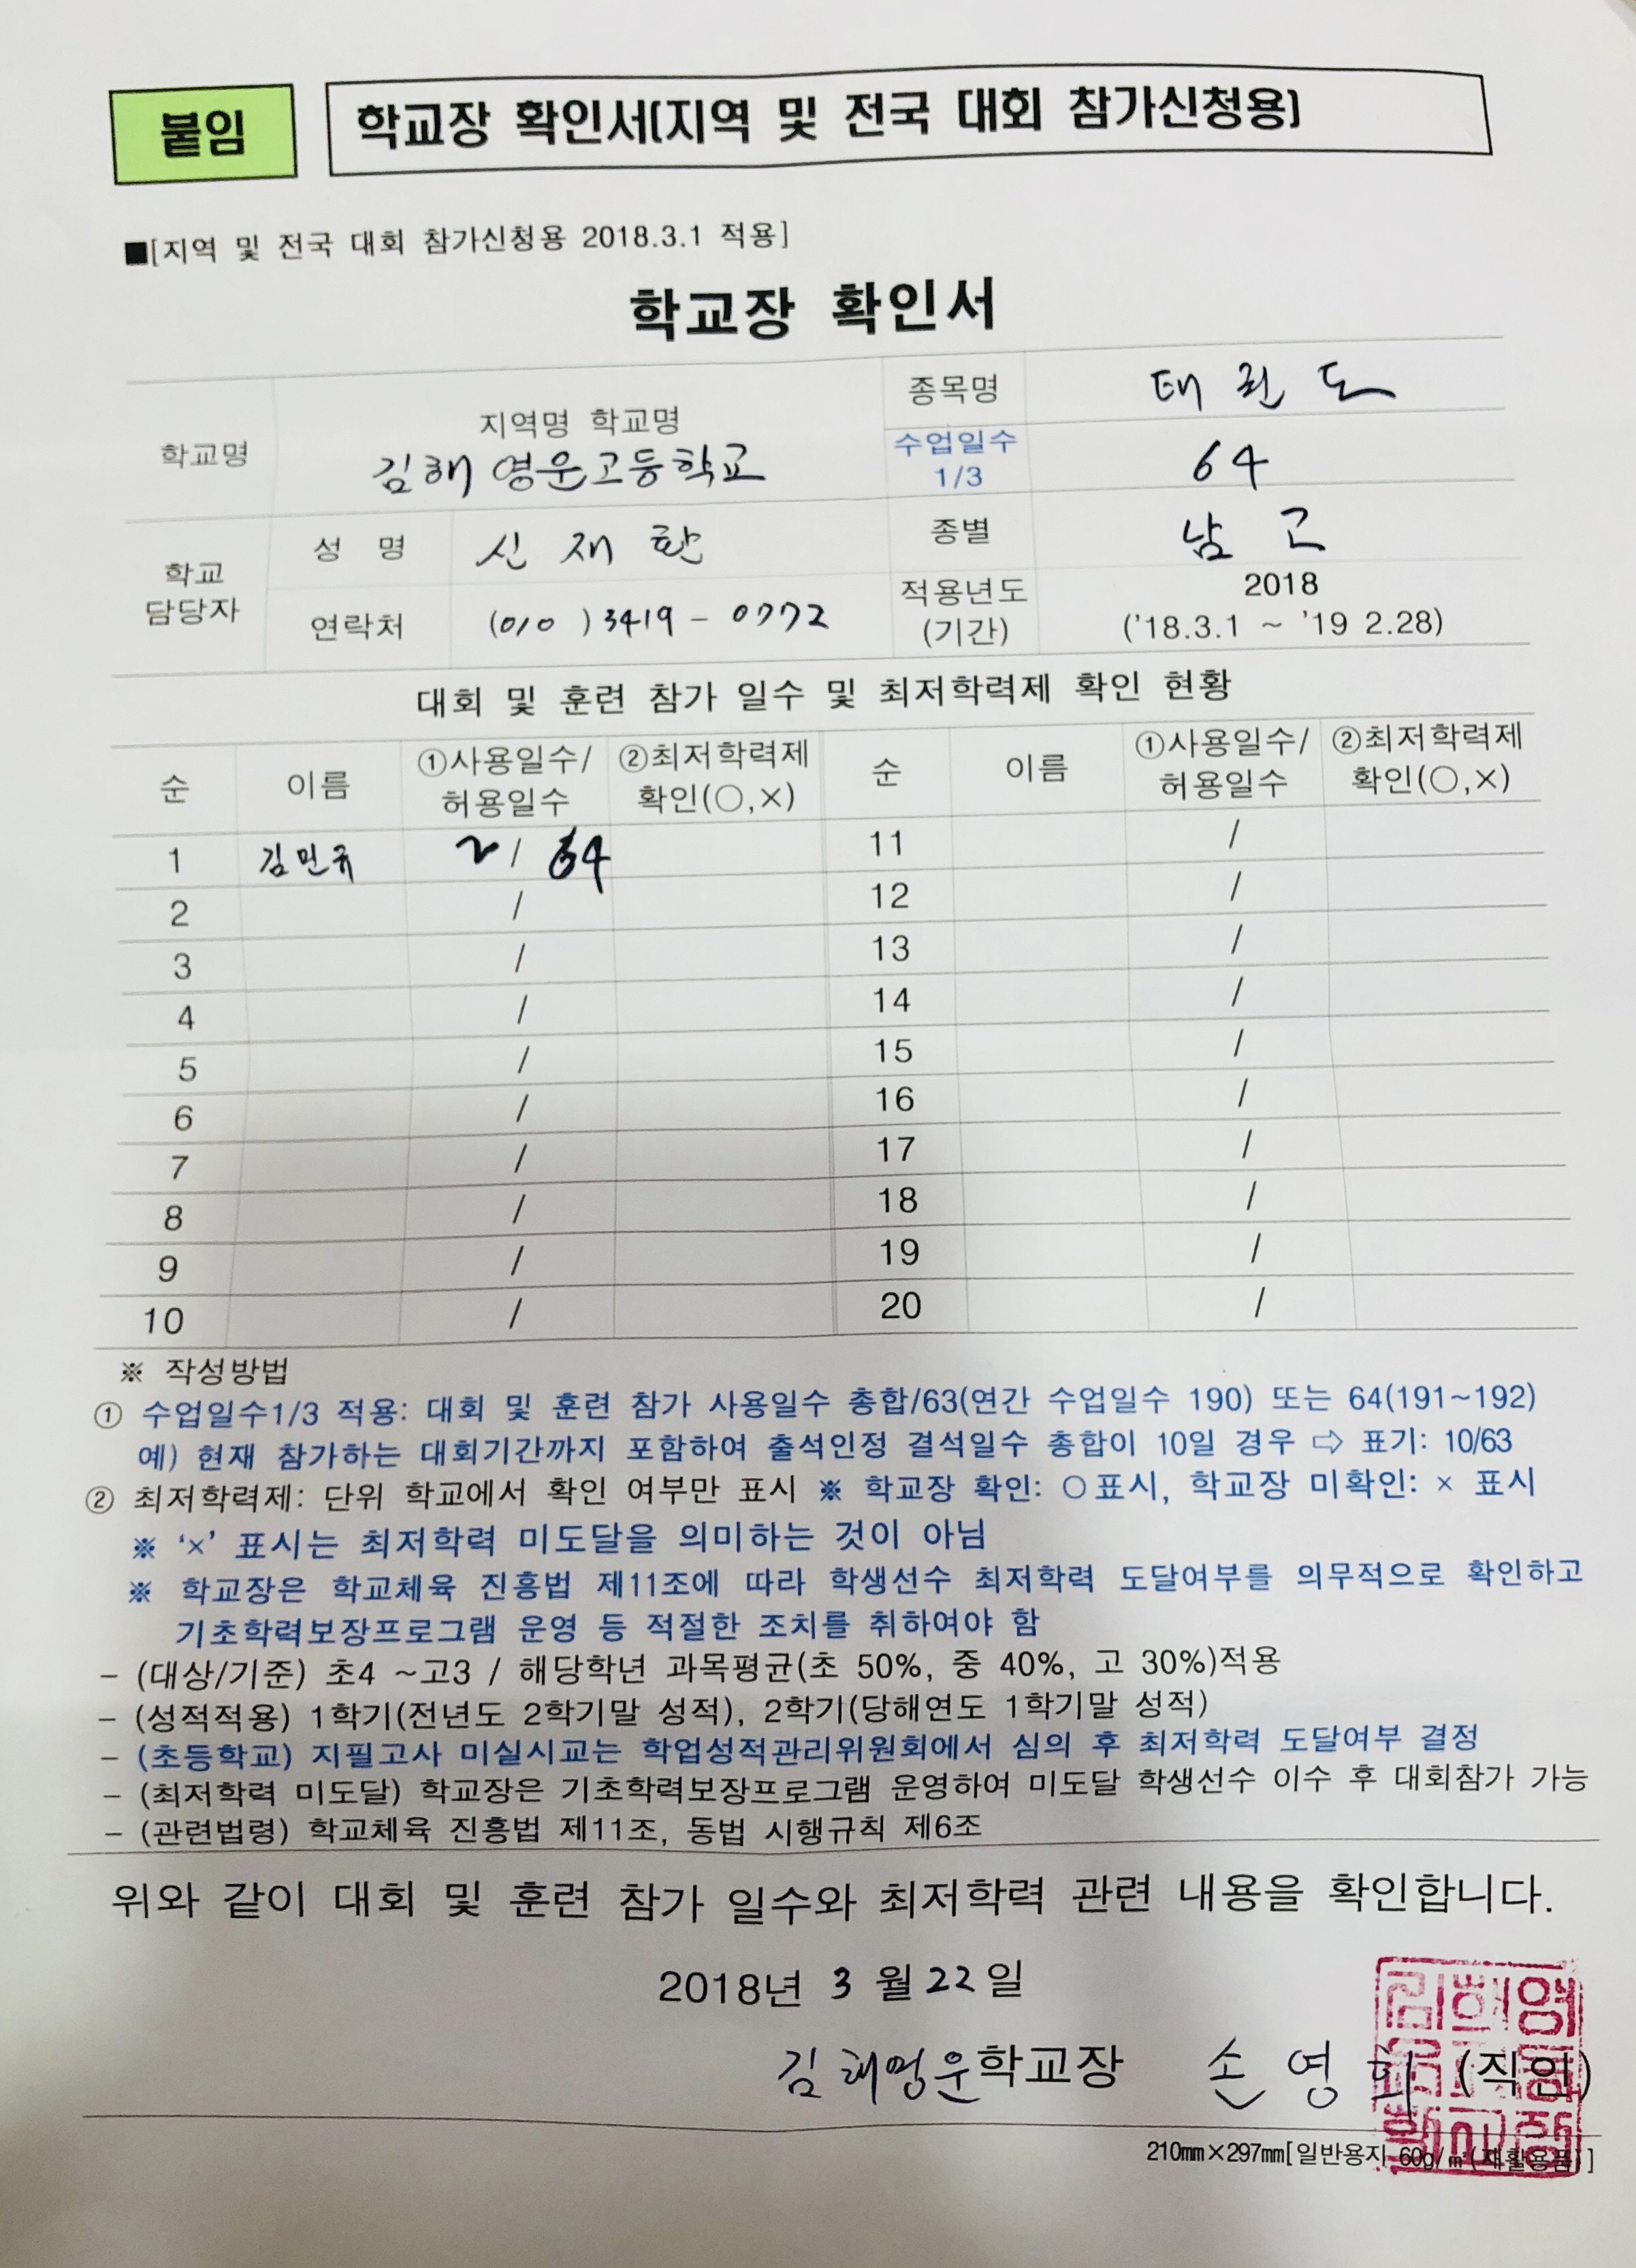 붙임
학교장 확인서[지역 및 전국 대회 참가신청용]
■[지역 및 전국 대회 참가신청용 2018.3.1 적용]
학교장 확인서
학교명 지역명 학교명 종목명 태권도
김해영운고등학교 수업일수 1/3 64
학교 담당자 성 명 신재환 종별 남고
연락처 (010)3419-0772 적용년도 (기간) 2018 ('18.3.1 ~ '19 2.28)
대회 및 훈련 참가 일수 및 최저학력제 확인 현황
순 이름 ①사용일수/허용일수 ②최저학력제 확인(○,×) 순 이름 ①사용일수/허용일수 ②최저학력제 확인(○,×)
1 김민규 2 / 64 11 /
2 / 12 /
3 / 13 /
4 / 14 /
5 / 15 /
6 / 16 /
7 / 17 /
8 / 18 /
9 / 19 /
10 / 20 /
※ 작성방법
① 수업일수1/3 적용: 대회 및 훈련 참가 사용일수 총합/63(연간 수업일수 190) 또는 64(191~192)
예) 현재 참가하는 대회기간까지 포함하여 출석인정 결석일수 총합이 10일 경우 ⇨ 표기: 10/63
② 최저학력제: 단위 학교에서 확인 여부만 표시 ※ 학교장 확인: ○표시, 학교장 미확인: × 표시
※ '×' 표시는 최저학력 미도달을 의미하는 것이 아님
※ 학교장은 학교체육 진흥법 제11조에 따라 학생선수 최저학력 도달여부를 의무적으로 확인하고
기초학력보장프로그램 운영 등 적절한 조치를 취하여야 함
- (대상/기준) 초4 ~고3 / 해당학년 과목평균(초 50%, 중 40%, 고 30%)적용
- (성적적용) 1학기(전년도 2학기말 성적), 2학기(당해연도 1학기말 성적)
- (초등학교) 지필고사 미실시교는 학업성적관리위원회에서 심의 후 최저학력 도달여부 결정
- (최저학력 미도달) 학교장은 기초학력보장프로그램 운영하여 미도달 학생선수 이수 후 대회참가 가능
- (관련법령) 학교체육 진흥법 제11조, 동법 시행규칙 제6조
위와 같이 대회 및 훈련 참가 일수와 최저학력 관련 내용을 확인합니다.
2018년 3 월 22 일
김해영운학교장 손영희 (직인)
210㎜×297㎜[일반용지 60g/㎡(재활용품)]